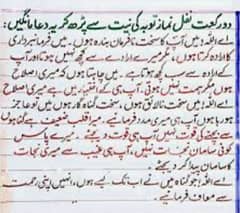 دو رکعت نفل نماز توبہ کی نیت سے پڑھ کر یہ دعا مانگیں:
اے اللہ! میں آپ کا سخت نافرمان بندہ ہوں۔ میں فرمانبرداری
کا ارادہ کرتا ہوں، مگر میرے ارادے سے کچھ نہیں ہوتا اور آپ
کے ارادہ سے سب کچھ ہوتا ہے۔ میں چاہتا ہوں کہ میری اصلاح
ہو مگر ہمت نہیں ہوتی۔ آپ ہی کے اختیار میں ہے میری اصلاح
اے اللہ! میں سخت نالائق ہوں، سخت گناہ گار ہوں میں تو عاجز
ہو رہا ہوں آپ ہی میری مدد فرمائیے۔ میرا قلب ضعیف ہے گناہوں
سے بچنے کی قوت نہیں آپ ہی قوت دیجئے۔ میرے پاس
کوئی سامان نجات نہیں، آپ ہی غیب سے میری نجات
کا سامان پیدا کر دیجئے۔
اے اللہ! جو گناہ میں نے اب تک کیے ہوں، انہیں اپنی رحمت
سے معاف فرمائیے۔